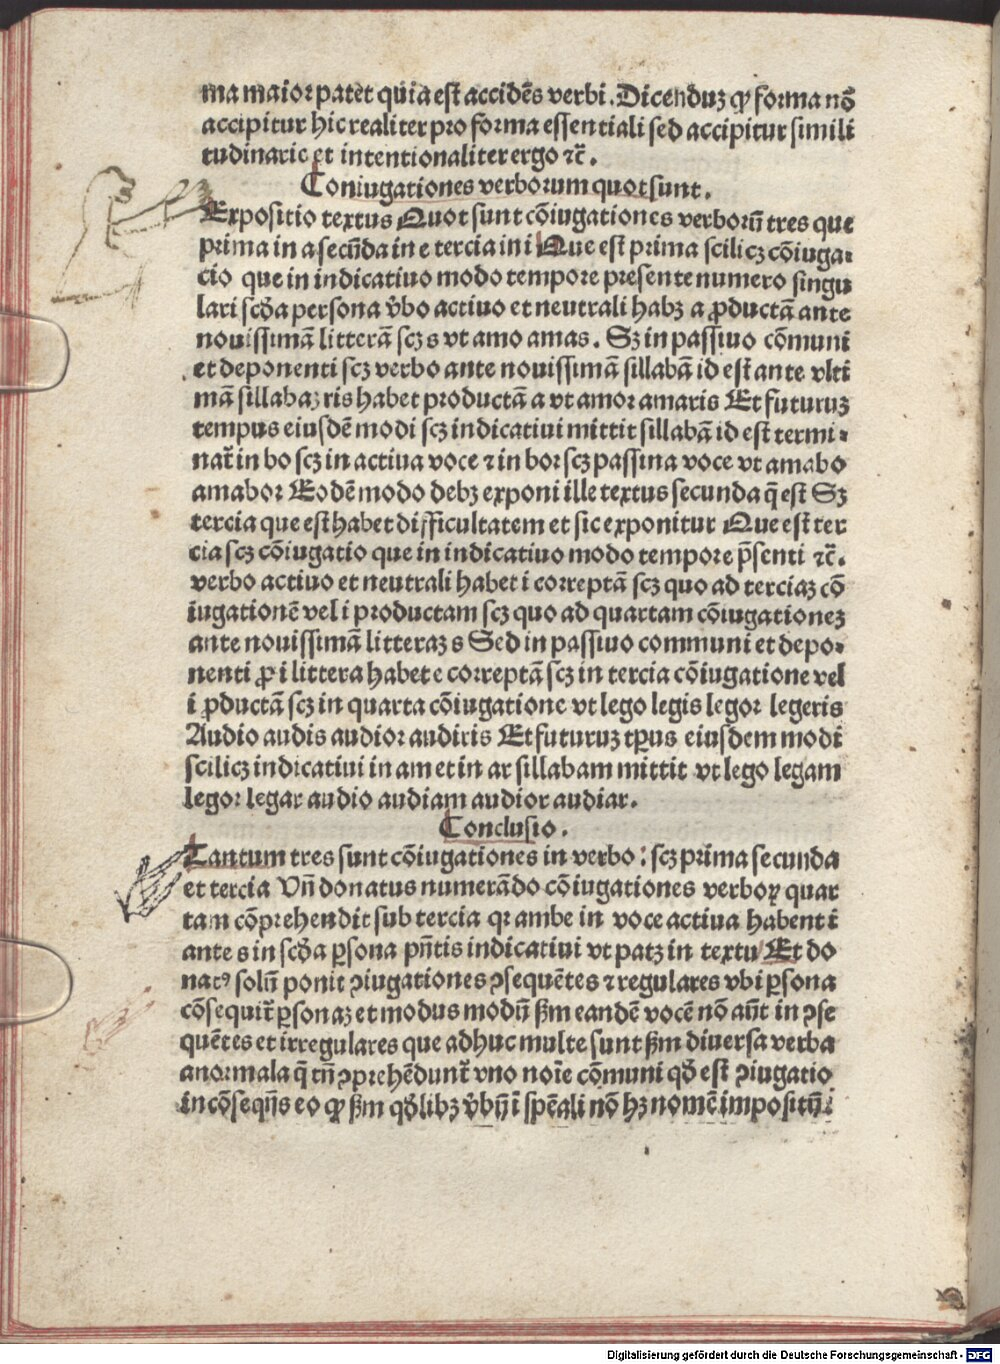 ma maior patet quia est accidẽs verbi. Dicenduʒ ꝙ forma nõ
accipitur hic realiter pro forma essentiali sed accipitur simili
tudinarie et intentionaliter ergo ⁊c̃.
Coniugationes verborum quot sunt.
Expositio textus Quot sunt cõiugationes verborũ tres que
prima in a secũda in e tercia in i Que est prima scilicʒ cõiuga⸗
cio que in indicatiuo modo tempore presente numero singu
lari scḋa persona v̇bo actiuo et neutrali habʒ a ꝓductã ante
nouissimã litterã scʒ s vt amo amas. Sʒ in passiuo cõmuni
et deponenti scʒ verbo ante nouissimã sillabã id est ante vlti
mã sillabaʒ ris habet productã a vt amor amaris Et futuruʒ
tempus eiusdẽ modi scʒ indicatiui mittit sillabã id est termi⸗
nat̃ in bo scʒ in actiua voce ⁊ in bor scʒ passiua voce vt amabo
amabor Eodẽ modo debʒ exponi ille textus secunda q̃ est Sʒ
tercia que est habet difficultatem et sic exponitur Que est ter
cia scʒ cõiugatio que in indicatiuo modo tempore p̃senti ⁊c̃.
verbo actiuo et neutrali habet i correptã scʒ quo ad terciaʒ cõ
iugationẽ vel i productam scʒ quo ad quartam cõiugationeʒ
ante nouissimã litteraʒ s Sed in passiuo communi et depo⸗
nenti ꝓ i littera habet e correptã scʒ in tercia cõiugatione vel
i ꝓductã scʒ in quarta cõiugatione vt lego legis legor legeris
Audio audis audior audiris Et futuruʒ tp̃us eiusdem modi
scilicʒ indicatiui in am et in ar sillabam mittit vt lego legam
legor legar audio audiam audior audiar.
Conclusio.
Tantum tres sunt cõiugationes in verbo: scʒ prima secunda
et tercia Vñ donatus numerãdo cõiugationes verboꝝ quar
tam cõprehendit sub tercia qr ambe in voce actiua habent i
ante s in scḋa ꝑsona pñtis indicatiui vt patʒ in textu Et do
natꝰ solũ ponit ꝯiugationes ꝯsequẽtes ⁊ regulares vbi ꝑsona
cõsequit̃ ꝑsonaʒ et modus modũ ẞm eandẽ vocẽ nõ aũt in ꝯse
quẽtes et irregulares que adhuc multe sunt ẞm diuersa verba
anormala q̃ tñ ꝯprehẽdunt̃ vno noĩe cõmuni qḋ est ꝯiugatio
incõseqñs eo ꝙ ẞm qḋlibʒ v̇bũ ĩ spẽali nõ hʒ nomẽ impositũ.
Digitalisierung gefördert durch die Deutsche Forschungsgemeinschaft - DFG